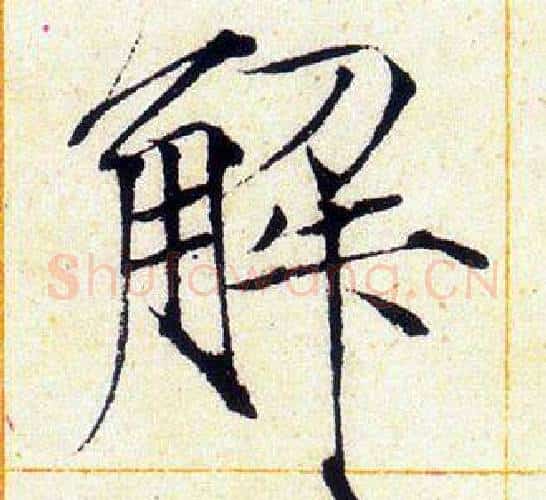 解
Shufawang.CN